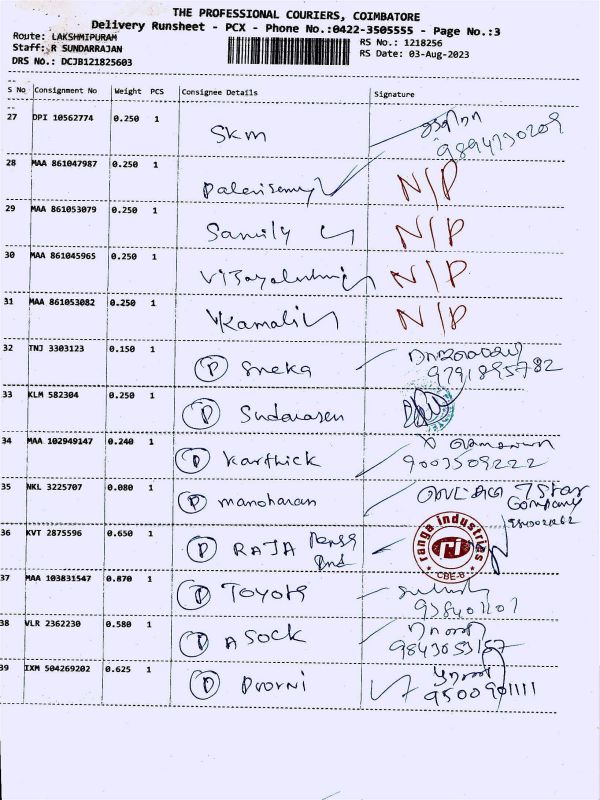 THE PROFESSIONAL COURIERS, COIMBATORE
Delivery Runsheet - PCX - Phone No.:0422-3505555 - Page No.:3
Route: LAKSHMIPURAM
Staff: R SUNDARRAJAN
DRS No.: DCJB121825603
RS No.: 1218256
RS Date: 03-Aug-2023
S No Consignment No Weight PCS Consignee Details Signature
27 DPI 10562774 0.250 1 SKM
9894730209
28 MAA 861047987 0.250 1 Palanisamy N/P
29 MAA 861053079 0.250 1 N/P
30 MAA 861045965 0.250 1 N/P
31 MAA 861053082 0.250 1 Kamali N/P
32 TNJ 3303123 0.150 1 P Sneka
9791895782
33 KLM 582304 0.250 1 P
34 MAA 102949147 0.240 1 P Karthick
9003509222
35 NKL 3225707 0.080 1 P manoharan 7 Star
Company
36 KVT 2875596 0.650 1 P RAJA
ranga industries
CBE-6
37 MAA 103831547 0.870 1 P TOYOTA
38 VLR 2362230 0.580 1 P ASOCK
39 IXM 504269202 0.625 1 P
9500901111